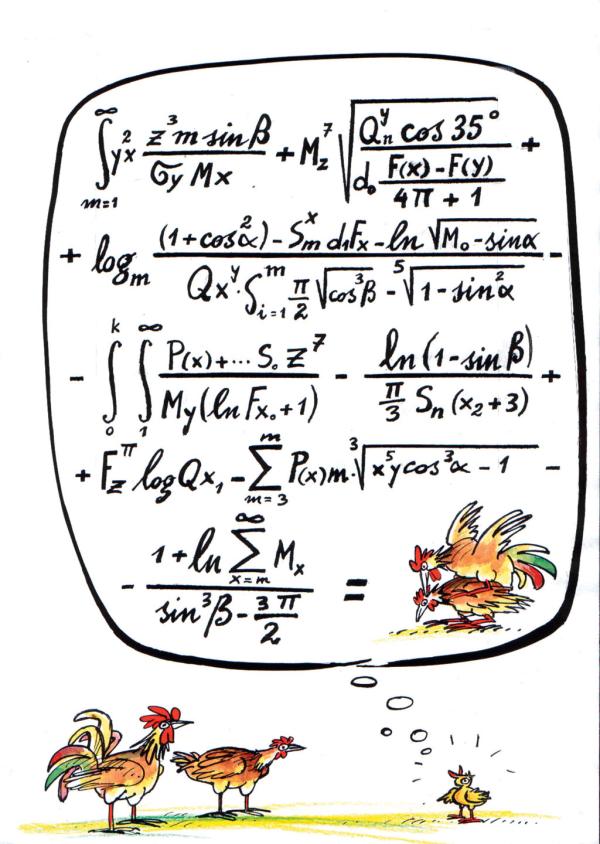 ∫_{m=1}^{∞} yx² (z³ m sin β)/(σy Mx) + M_z⁷ √((Q_n^y cos 35°)/(d₀ (F(x) - F(y))/(4π + 1))) +
+ log_m ((1+cos²α) - S_m^x d₁Fx - ln √(M₀ - sinα))/(Qx^y · S_{i=1}^m π/2 √(cos³β) - ⁵√(1 - sin²α)) -
- ∫_0^k ∫_1^∞ (P(x) + ... S₀ z⁷)/(My(ln Fx₀ + 1)) - (ln (1 - sin β))/(π/3 S_n (x₂ + 3)) +
+ F_z^π log Qx₁ - ∑_{m=3}^{m} P(x)m · ³√(x⁵y cos³α - 1) -
- (1 + ln ∑_{x=m}^{∞} M_x)/(sin³β - 3π/2) =